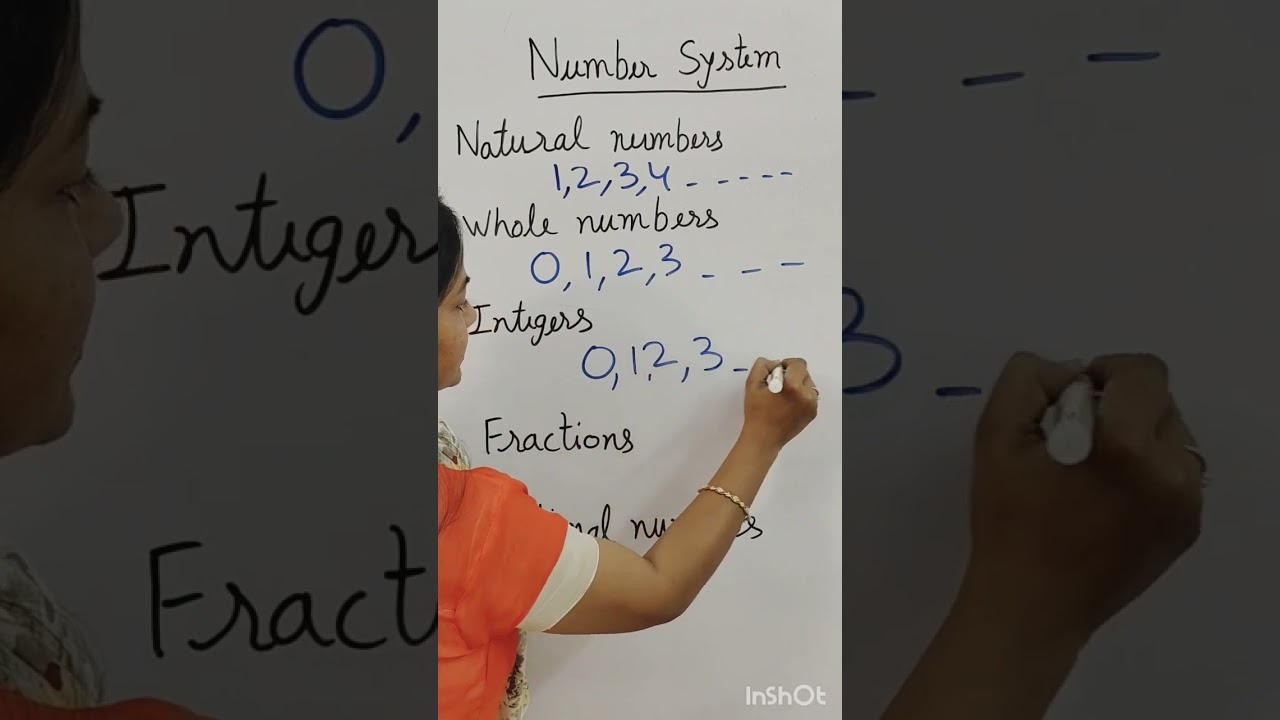 Number System
Natural numbers
1,2,3,4 - - - - -
Whole numbers
0, 1, 2, 3 - - -
Intigers
0,1,2,3 -
Fractions
InShOt